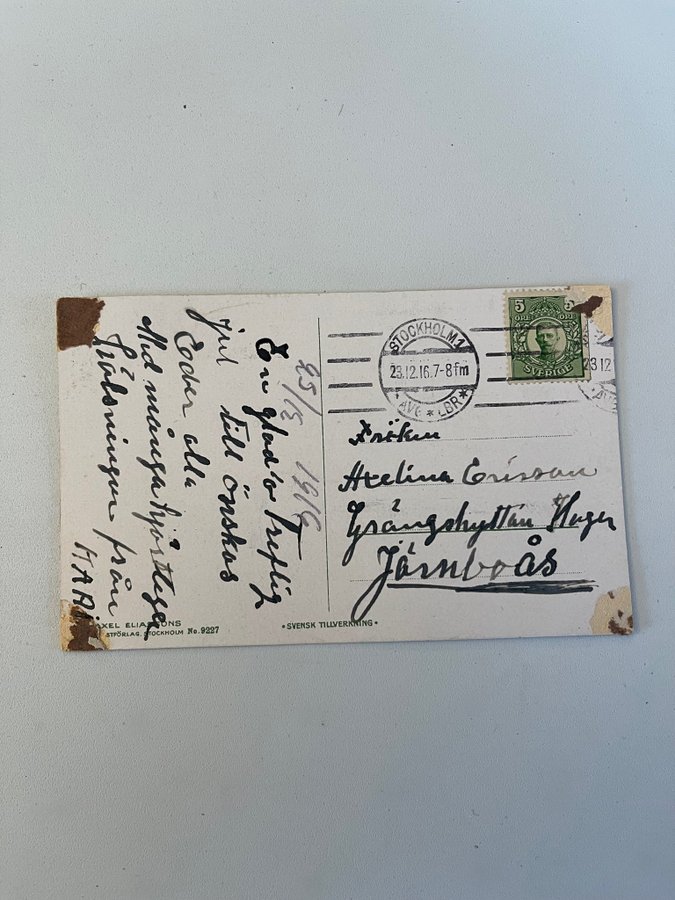 25/12 1916
En glad o Treflig
jul till önskas
Eder alla
Med många hjärtliga
hälsningar från
AXEL ELIASSONS
KONSTFÖRLAG, STOCKHOLM No. 9227
• SVENSK TILLVERKNING •
STOCKHOLM 1
23.12.16.7-8 fm
AVG * LBR *
5 5
ÖRE ÖRE
SVERIGE
23 12
Fröken
Axelina Ericsson
Grängshyttan
Järnboås